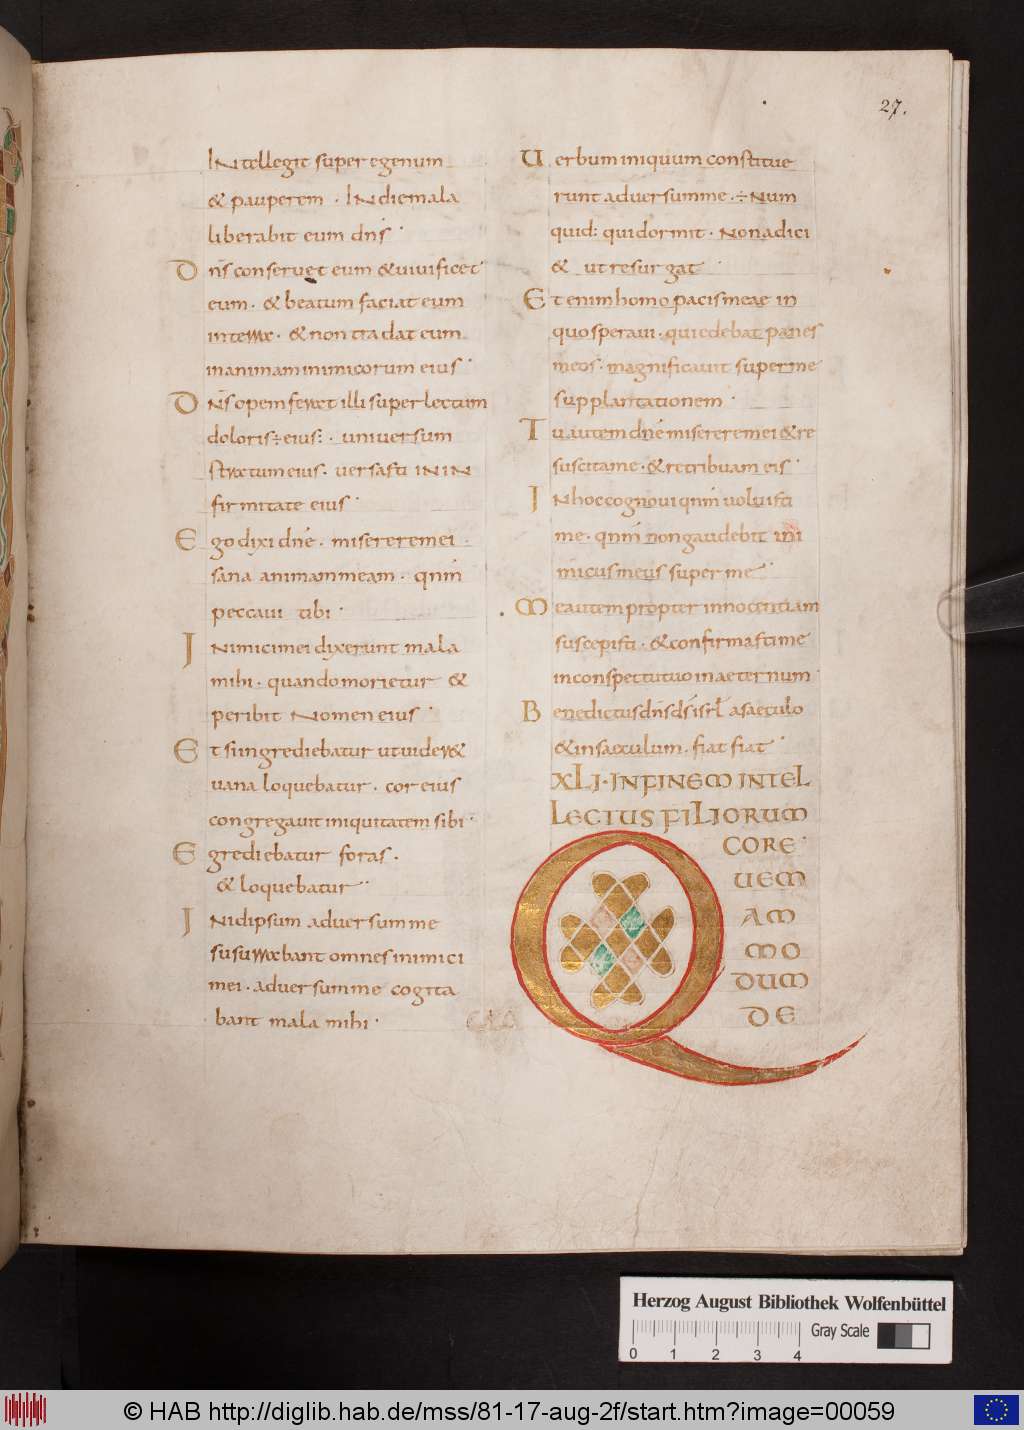 27.
INtellegit super egenum
& pauperem · IN die mala
liberabit eum dn̄s·
Dn̄s conseruet eum &uiuificet
eum· & beatum faciat eum
in terra· & non tradat eum
in animam inimicorum eius·
DN̄s opem ferat illi super lectum
doloris÷eius:· uniuersum
stratum eius· uersasti IN IN
firmitate eius·
Ego dixi dn̄e· miserere mei·
sana animam meam· qnm̄
peccaui tibi·
INimici mei dixerunt mala
mihi· quando morietur &
peribit Nomen eius·
Et si ingrediebatur ut uider&
uana loquebatur· cor eius
congregauit iniquitatem sibi·
Egrediebatur foras·
& loquebatur··
INidipsum aduersum me
susurrabant omnes inimici
mei· aduersum me cogita
bant mala mihi·
Uerbum iniquum constitue
runt aduersum me·÷Num
quid: qui dormit· Non adici
& ut resurgat·
Etenim homo pacis meae in
quo speraui· qui edebat panes
meos· magnificauit super me
supplantationem·
Tu autem dn̄e miserere mei &re
suscita me· &retribuam eis·
IN hoc cognoui qnm̄ uoluisti
me· qnm̄ non gaudebit ini
micus meus super me·
Me autem propter innocentiam
suscepisti· &confirmasti me
in conspectu tuo in aeternum·
Benedictus dn̄s ds̄ isrl̄ a saeculo
&in saeculum· fiat fiat·
XLI·IN FINEM INTEL
LECTUS FILIORUM
CORE·
QUEM
AM
MO
DUM
DE
Herzog August Bibliothek Wolfenbüttel
Gray Scale
0 1 2 3 4
© HAB http://diglib.hab.de/mss/81-17-aug-2f/start.htm?image=00059